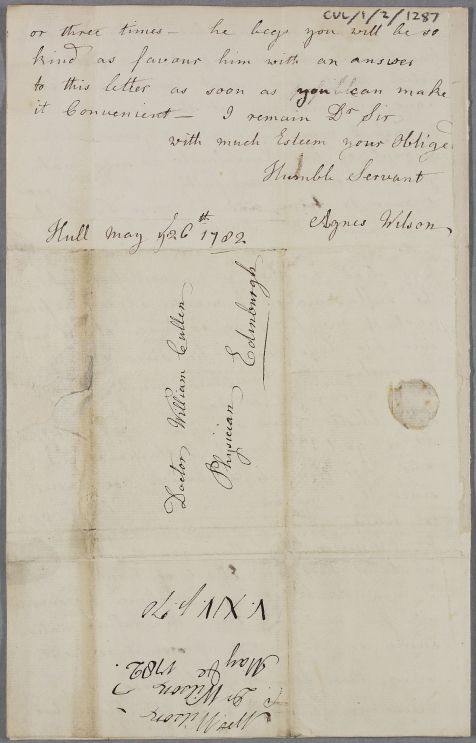 CUL/1/2/1287
or three times - he begs you will be so
kind as favour him with an answer
to this letter as soon as you can make
it Convenient - I remain Dr Sir
with much Esteem your Oblige
Humble Servant
Agnes Wilson
Hull May ye 26th 1782
Doctor William Cullen
Physician Edinburgh
Mrs Wilson
Dr Wilson
May 1782.
V. XIV. p. 70